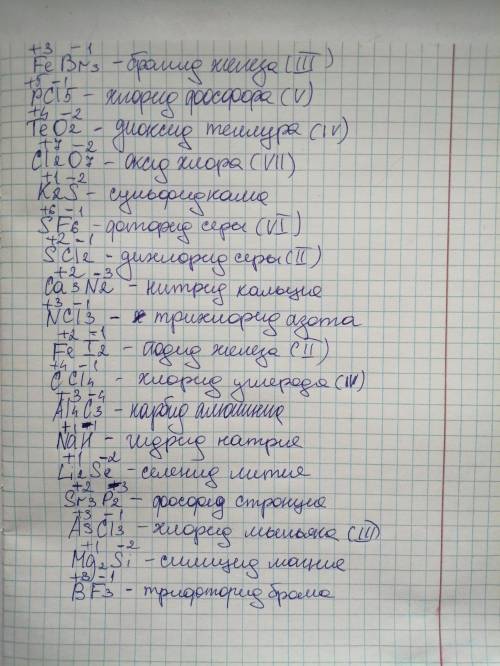 +3 -1
FeBr3 - бромид железа (III)
+5 -1
PCl5 - хлорид фосфора (V)
+4 -2
TeO2 - диоксид теллура (IV)
+7 -2
Cl2O7 - оксид хлора (VII)
+1 -2
K2S - сульфид калия
+6 -1
SF6 - фторид серы (VI)
+2 -1
SCl2 - дихлорид серы (II)
+2 -3
Ca3N2 - нитрид кальция
+3 -1
NCl3 - трихлорид азота
+2 -1
FeI2 - йодид железа (II)
+4 -1
CCl4 - хлорид углерода (IV)
+3 -4
Al4C3 - карбид алюминия
+1 -1
NaH - гидрид натрия
+1 -2
Li2Se - селенид лития
+2 -3
Sr3P2 - фосфид стронция
+3 -1
AsCl3 - хлорид мышьяка (III)
+1 -2
Mg2Si - силицид магния
+3 -1
BF3 - трифторид брома